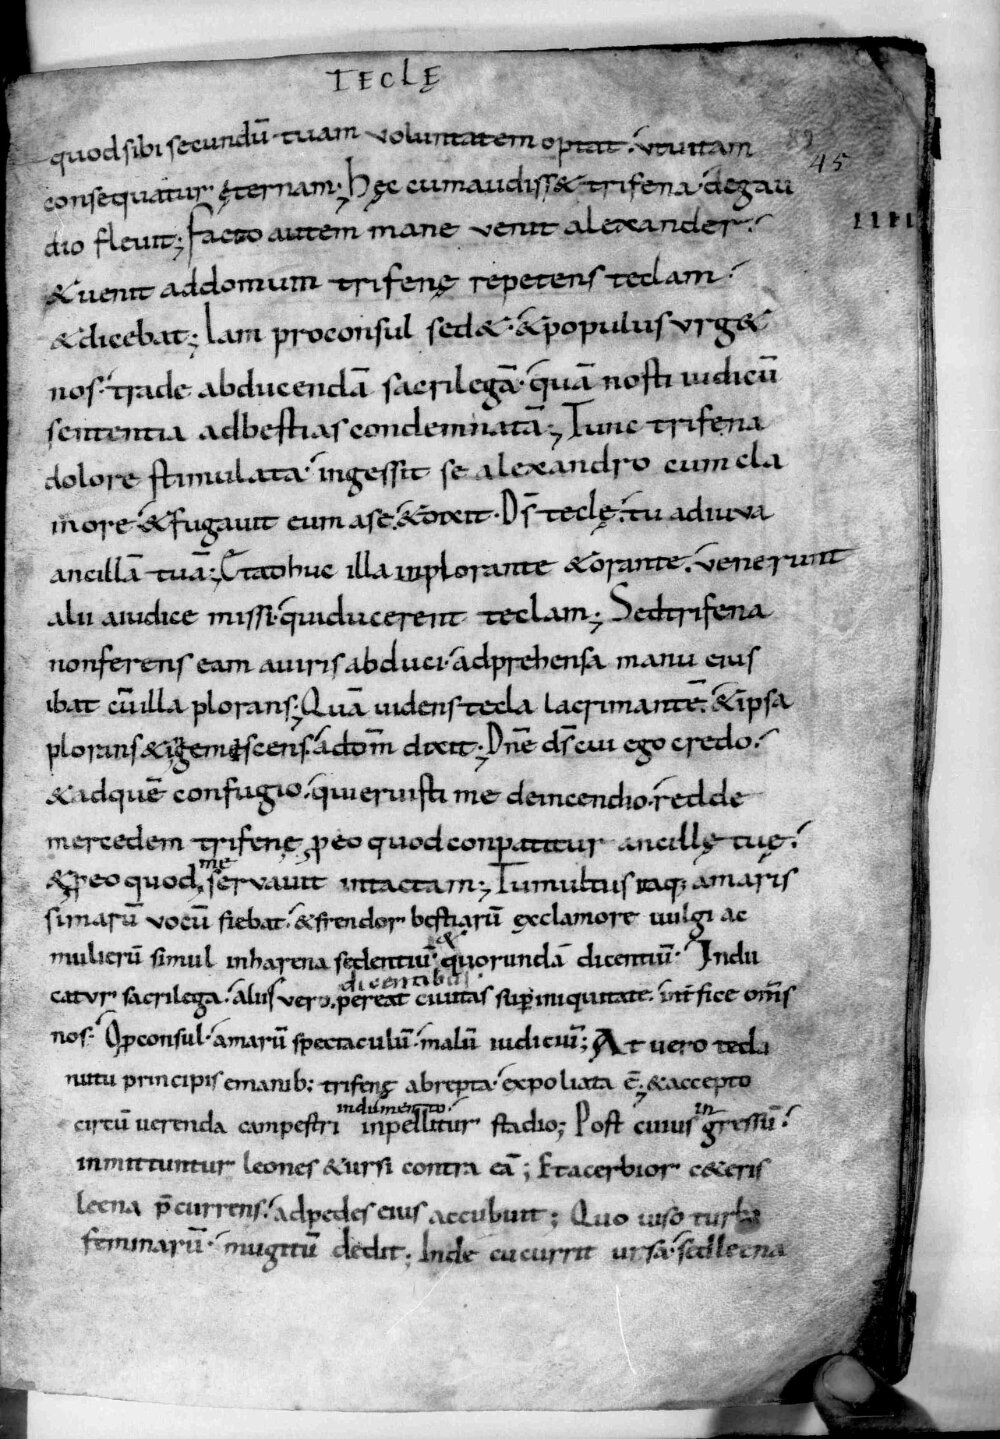 TECLĘ
quod sibi secundū tuam voluntatem optat. ut vitam
89
45
consequatur ęternam; Hęc cum audiss& trifena. de gau
IIII
dio flevit; Facto autem mane venit alexander.
& venit ad domum trifenę repetens teclam.
& dicebat; Iam proconsul sed&. & populus urg&
nos. trade abducendā sacrilegā. quā nosti iudicū
sententia ad bestias condemnatā; Tunc trifena
dolore stimulata. ingessit se alexandro cum cla
more. & fugavit eum a se. & dixit. D̄s teclę. tu adiuva
ancillā tuā; Et adhuc illa inplorante & orante. venerunt
alii a iudice missi. qui ducerent teclam; Sed trifena
non ferens eam a viris abduci. adprehensa manu eius
ibat cū illa plorans; Quā videns tecla lacrimantē. & ipsa
plorans & ingemescens. ad dom̄ dixit; Dn̄e d̄s cui ego credo.
& ad quē confugio. qui eruisti me de incendio. redde
mercedem trifenę pro eo quod conpatitur ancillę tuę.
me
& pro eo quod servavit intactam; Tumultus itaq; amaris
simarū vocū fiebat. & frendor bestiarū ex clamore vulgi ac
&
mulierū simul in harena sedentiū. quorundā dicentiū. Indu
dicentibus
catur sacrilega. aliis vero. pereat civitas sup iniquitate. int̄fice om̄s
nos. O pconsul. amarū spectaculū. malū iudiciū; At vero tecla
nutu principis e manib; trifenę abrepta. expoliata ē; & accepto
indumento. in
circū verenda campestri inpellitur stadio; Post cuius gressū.
inmittuntur leones & ursi contra eā; Et acerbior c&eris
leena p̄currens. ad pedes eius accubuit; Quo viso turba
feminarū. mugitū dedit; Inde cucurrit ursa. sed leena